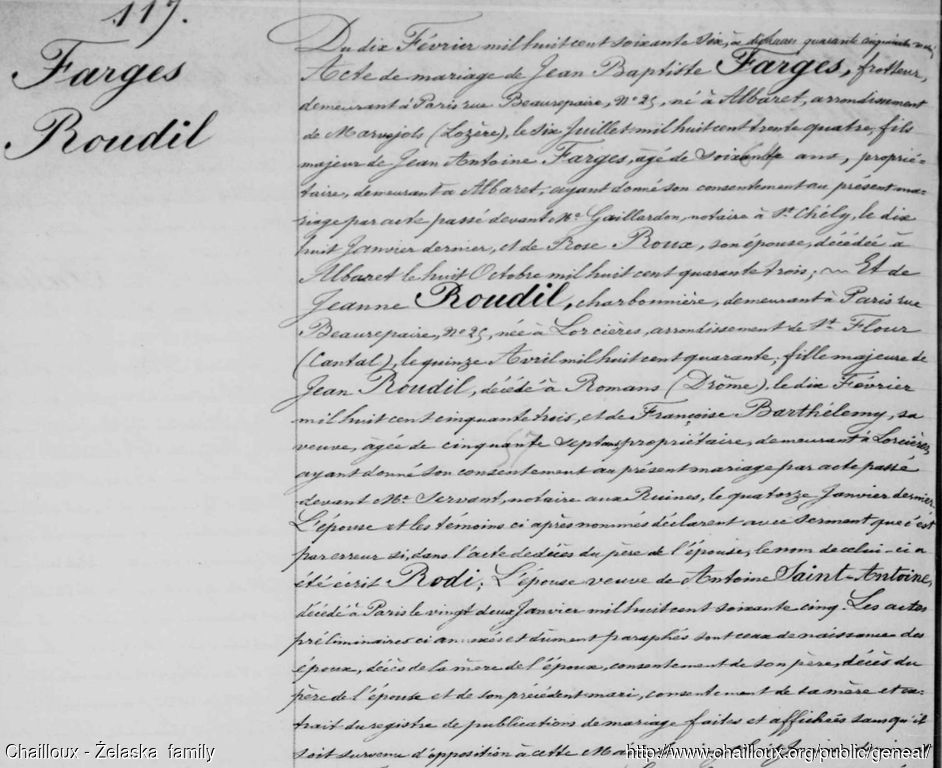 117.
Farges
Roudil
Du dix Février mil huit cent soixante six, à dix heures quarante cinq minutes,
Acte de mariage de Jean Baptiste Farges, frotteur,
demeurant à Paris rue Beaurepaire, N° 25, né à Albaret, arrondissement
de Marvejols (Lozère), le six Juillet mil huit cent trente quatre, fils
majeur de Jean Antoine Farges, âgé de soixante ans, proprié-
taire, demeurant à Albaret, ayant donné son consentement au présent ma-
riage par acte passé devant Me Gaillardon, notaire à St Chély, le dix
huit Janvier dernier, et de Rose Roux, son épouse, décédée à
Albaret le huit Octobre mil huit cent quarante trois; ~ Et de
Jeanne Roudil, charbonnière, demeurant à Paris rue
Beaurepaire, N° 25, née à Lorcières, arrondissement de St Flour
(Cantal), le quinze Avril mil huit cent quarante, fille majeure de
Jean Roudil, décédé à Romans (Drôme), le dix Février
mil huit cent cinquante trois, et de Françoise Barthélemy, sa
veuve, âgée de cinquante sept ans, propriétaire, demeurant à Lorcières,
ayant donné son consentement au présent mariage par acte passé
devant Me Servant, notaire aux Ruines, le quatorze Janvier dernier.
L'épouse et les témoins ci après nommés déclarent avec serment que c'est
par erreur si, dans l'acte de décès du père de l'épouse, le nom de celui-ci a
été écrit Rodi; L'épouse veuve de Antoine Saint-Antoine,
décédé à Paris le vingt deux Janvier mil huit cent soixante cinq. Les actes
préliminaires ci annexés et dûment paraphés sont ceux de naissance des
époux, décès de la mère de l'époux, consentement de son père, décès du
père de l'épouse et de son précédent mari, consentement de sa mère et ex-
trait du registre de publications de mariage faites et affichées sans qu'il
soit survenu d'opposition à cette Mairie
Chailloux - Želaska family
http://www.chailloux.org/public/geneal/